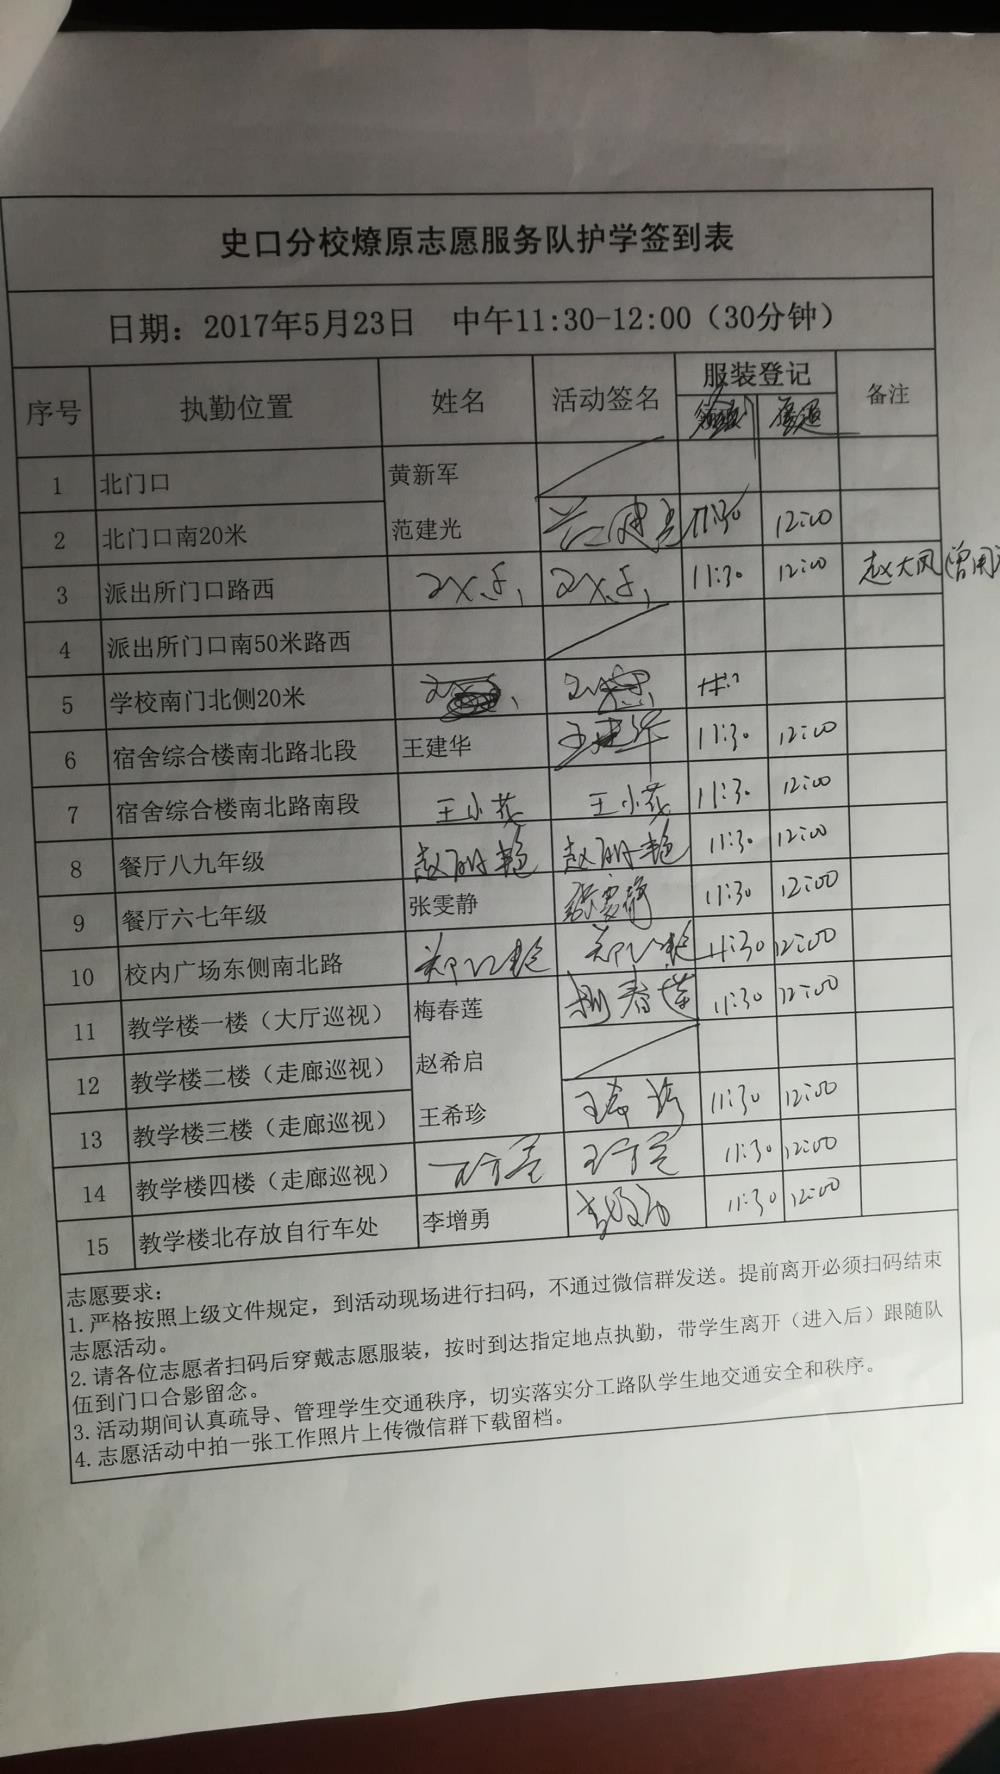 史口分校燎原志愿服务队护学签到表
日期：2017年5月23日 中午11:30-12:00（30分钟）
序号 执勤位置 姓名 活动签名 服装登记 备注
1 北门口 黄新军
2 北门口南20米 范建光 范建光 11:30 12:00
3 派出所门口路西 11:30 12:00 赵大凤(曾用
4 派出所门口南50米路西
5 学校南门北侧20米
6 宿舍综合楼南北路北段 王建华 王建华 11:30 12:00
7 宿舍综合楼南北路南段 王小花 王小花 11:30 12:00
8 餐厅八九年级 赵丽艳 赵丽艳 11:30 12:00
9 餐厅六七年级 张雯静 张雯静 11:30 12:00
10 校内广场东侧南北路 11:30 12:00
11 教学楼一楼（大厅巡视） 梅春莲 梅春莲 11:30 12:00
12 教学楼二楼（走廊巡视） 赵希启
13 教学楼三楼（走廊巡视） 王希珍 王希珍 11:30 12:00
14 教学楼四楼（走廊巡视） 11:30 12:00
15 教学楼北存放自行车处 李增勇 李增勇 11:30 12:00
志愿要求：
1.严格按照上级文件规定，到活动现场进行扫码，不通过微信群发送。提前离开必须扫码结束
志愿活动。
2.请各位志愿者扫码后穿戴志愿服装，按时到达指定地点执勤，带学生离开（进入后）跟随队
伍到门口合影留念。
3.活动期间认真疏导、管理学生交通秩序，切实落实分工路队学生地交通安全和秩序。
4.志愿活动中拍一张工作照片上传微信群下载留档。